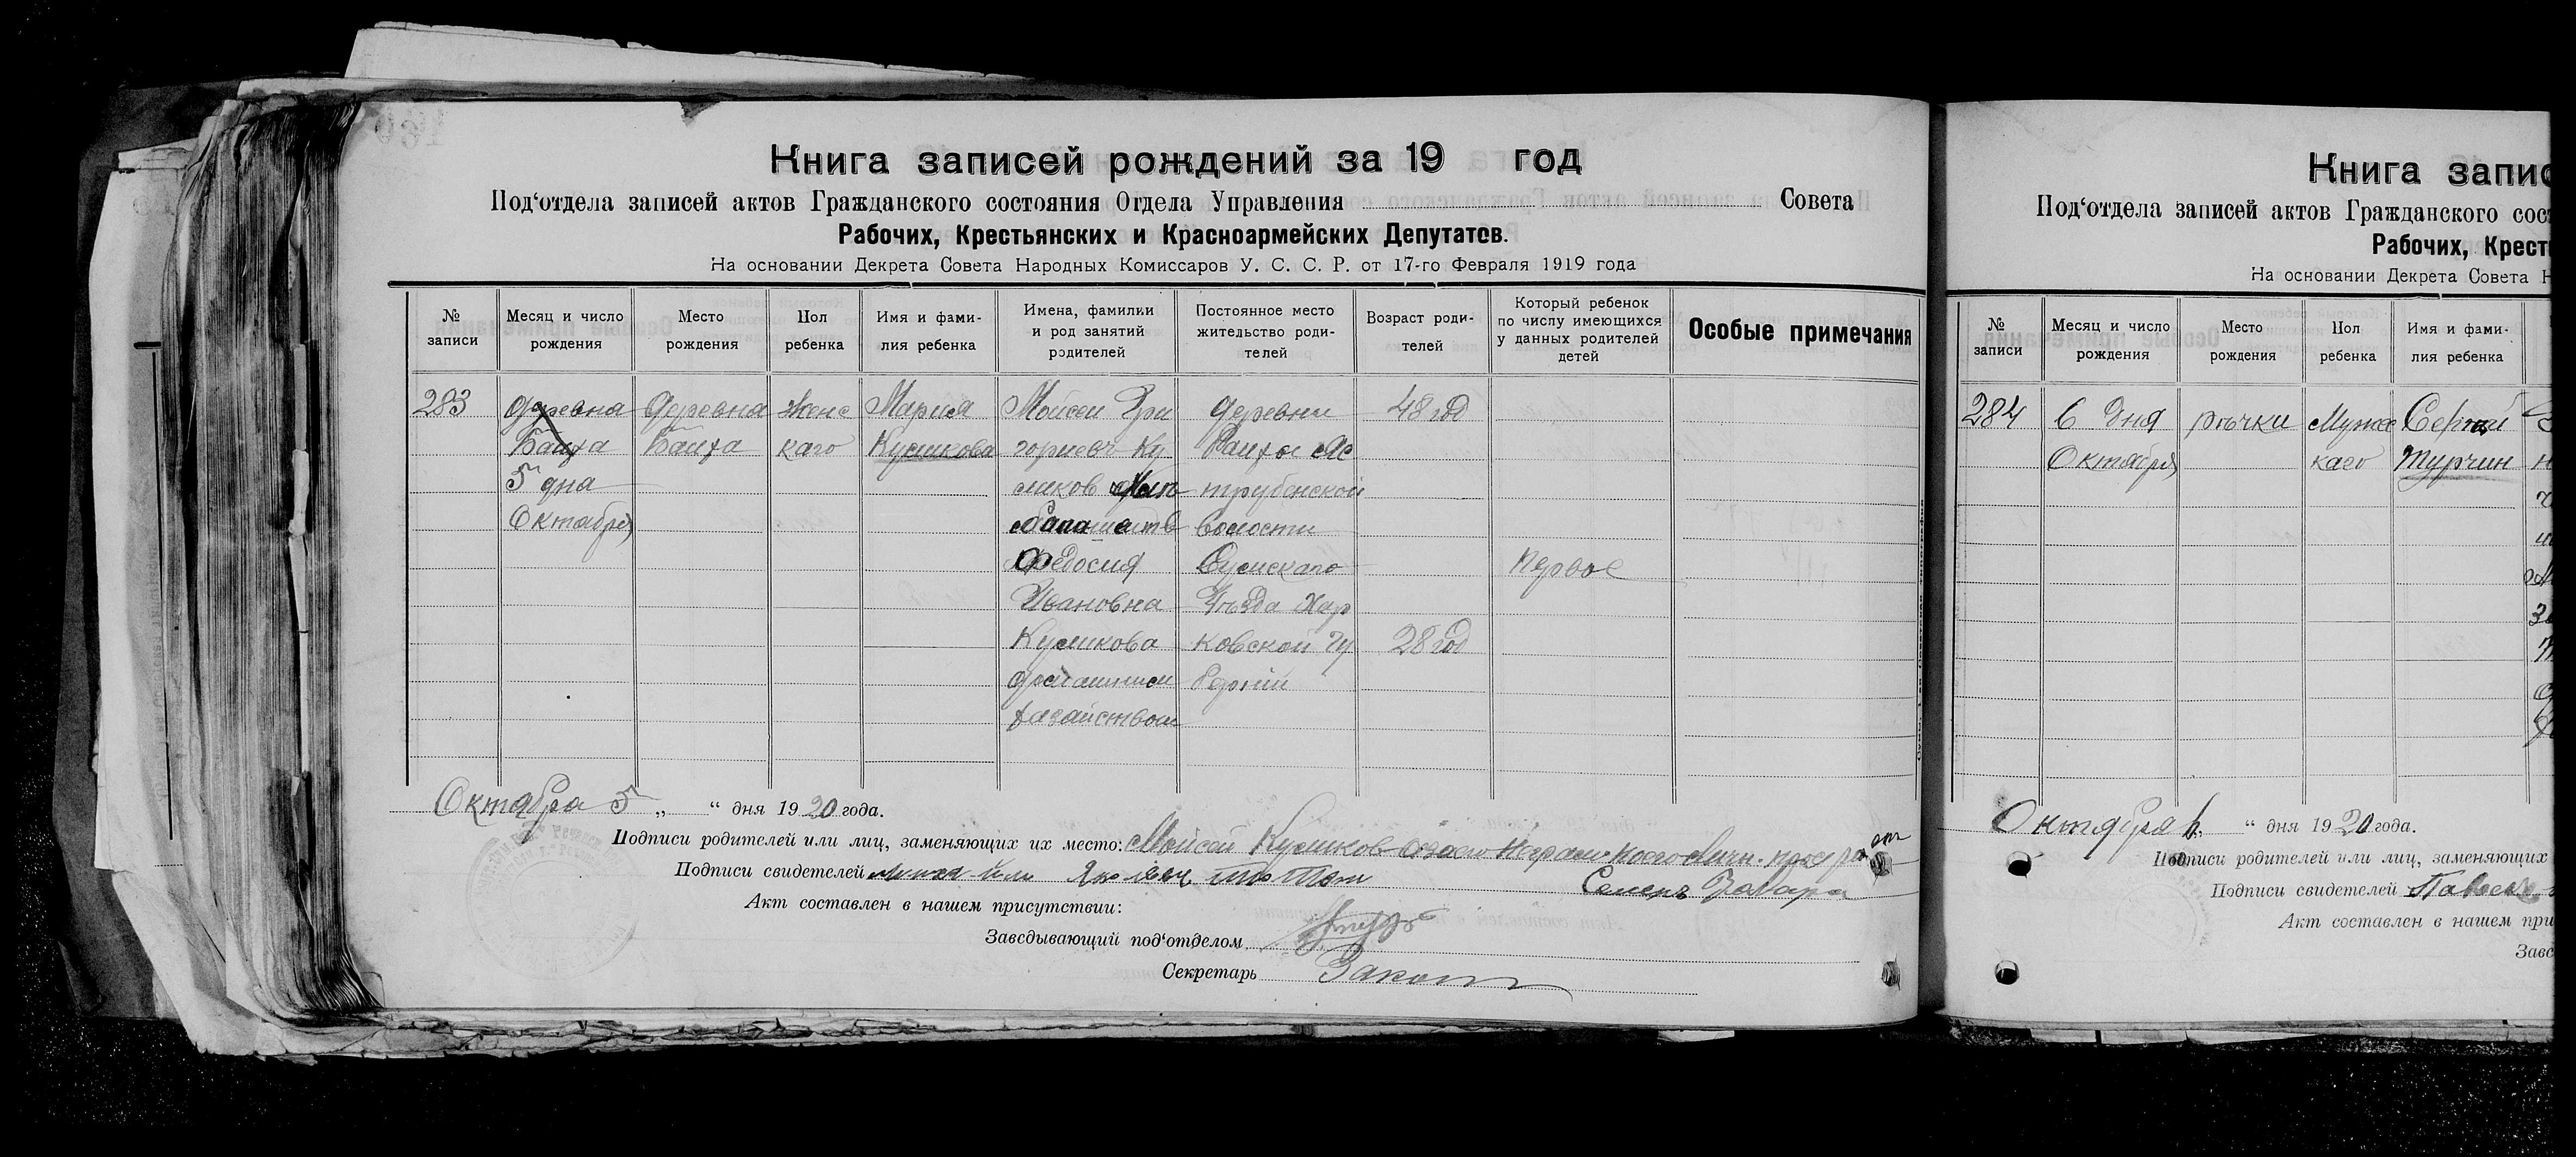 Книга записей рождений за 19 год
Под‘отдела записей актов Гражданского состояния Отдела Управления Совета
Рабочих, Крестьянских и Красноармейских Депутатов.
На основании Декрета Совета Народных Комиссаров У. С. С. Р. от 17-го Февраля 1919 года
№ записи
Месяц и число рождения
Место рождения
Пол ребенка
Имя и фами-
лия ребенка
Имена, фамилии
и род занятий
родителей
Постоянное место
жительство роди-
телей
Возраст роди-
телей
Который ребенок
по числу имеющихся
у данных родителей
детей
Особые примечания
283
деревна
5 дна
Октабря
Деревна
Женс
каго
Мария
Куликова
Мойсеи Гри
гориевъ Ку
ликов
Федосия
Ивановна
Куликова
хазайством
деревни
волости
Сумскаго
Уъзда Хар
ковской Гу
бернии
48 год
28 год
Первое
Октабра 5 „ “ дня 1920 года.
Подписи родителей или лиц, заменяющих их место: Мойсей Куликов
Подписи свидетелей
Семенъ
Акт составлен в нашем присутствии:
Заведывающий под‘отделом
Секретарь
Книга запис
Под‘отдела записей актов Гражданского сост
Рабочих, Крест
На основании Декрета Совета Н
№ записи
Месяц и число рождения
Место рождения
Пол ребенка
Имя и фами-
лия ребенка
284
6 дня
Октабря
ръчки
Мужс
каго
Сергей
Турчин
Октября 6 „ “ дня 1920 года.
Подписи родителей или лиц, заменяющих
Подписи свидетелей
Акт составлен в нашем при
Завс